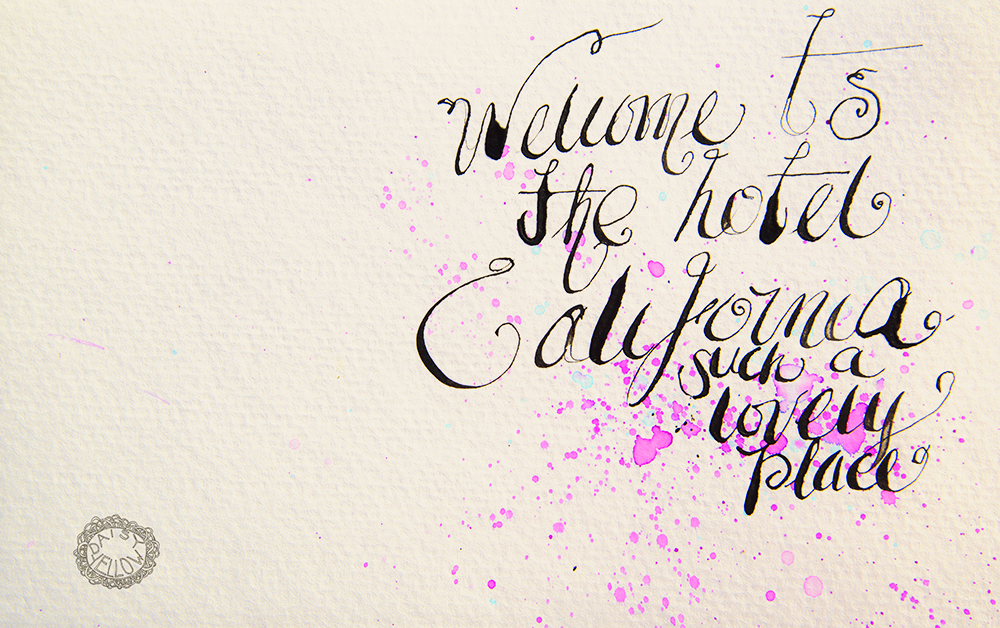 Welcome to
the hotel
California
such a
lovely
place
DAISY
YELLOW